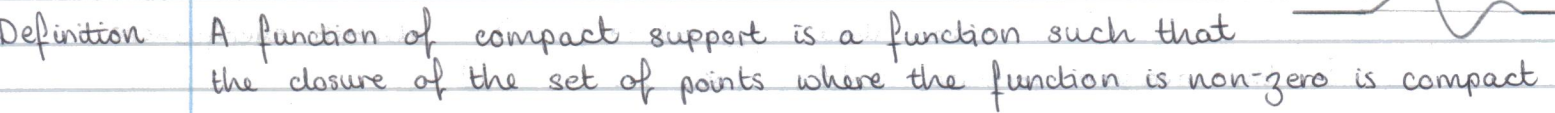 Definition A function of compact support is a function such that
the closure of the set of points where the function is non-zero is compact